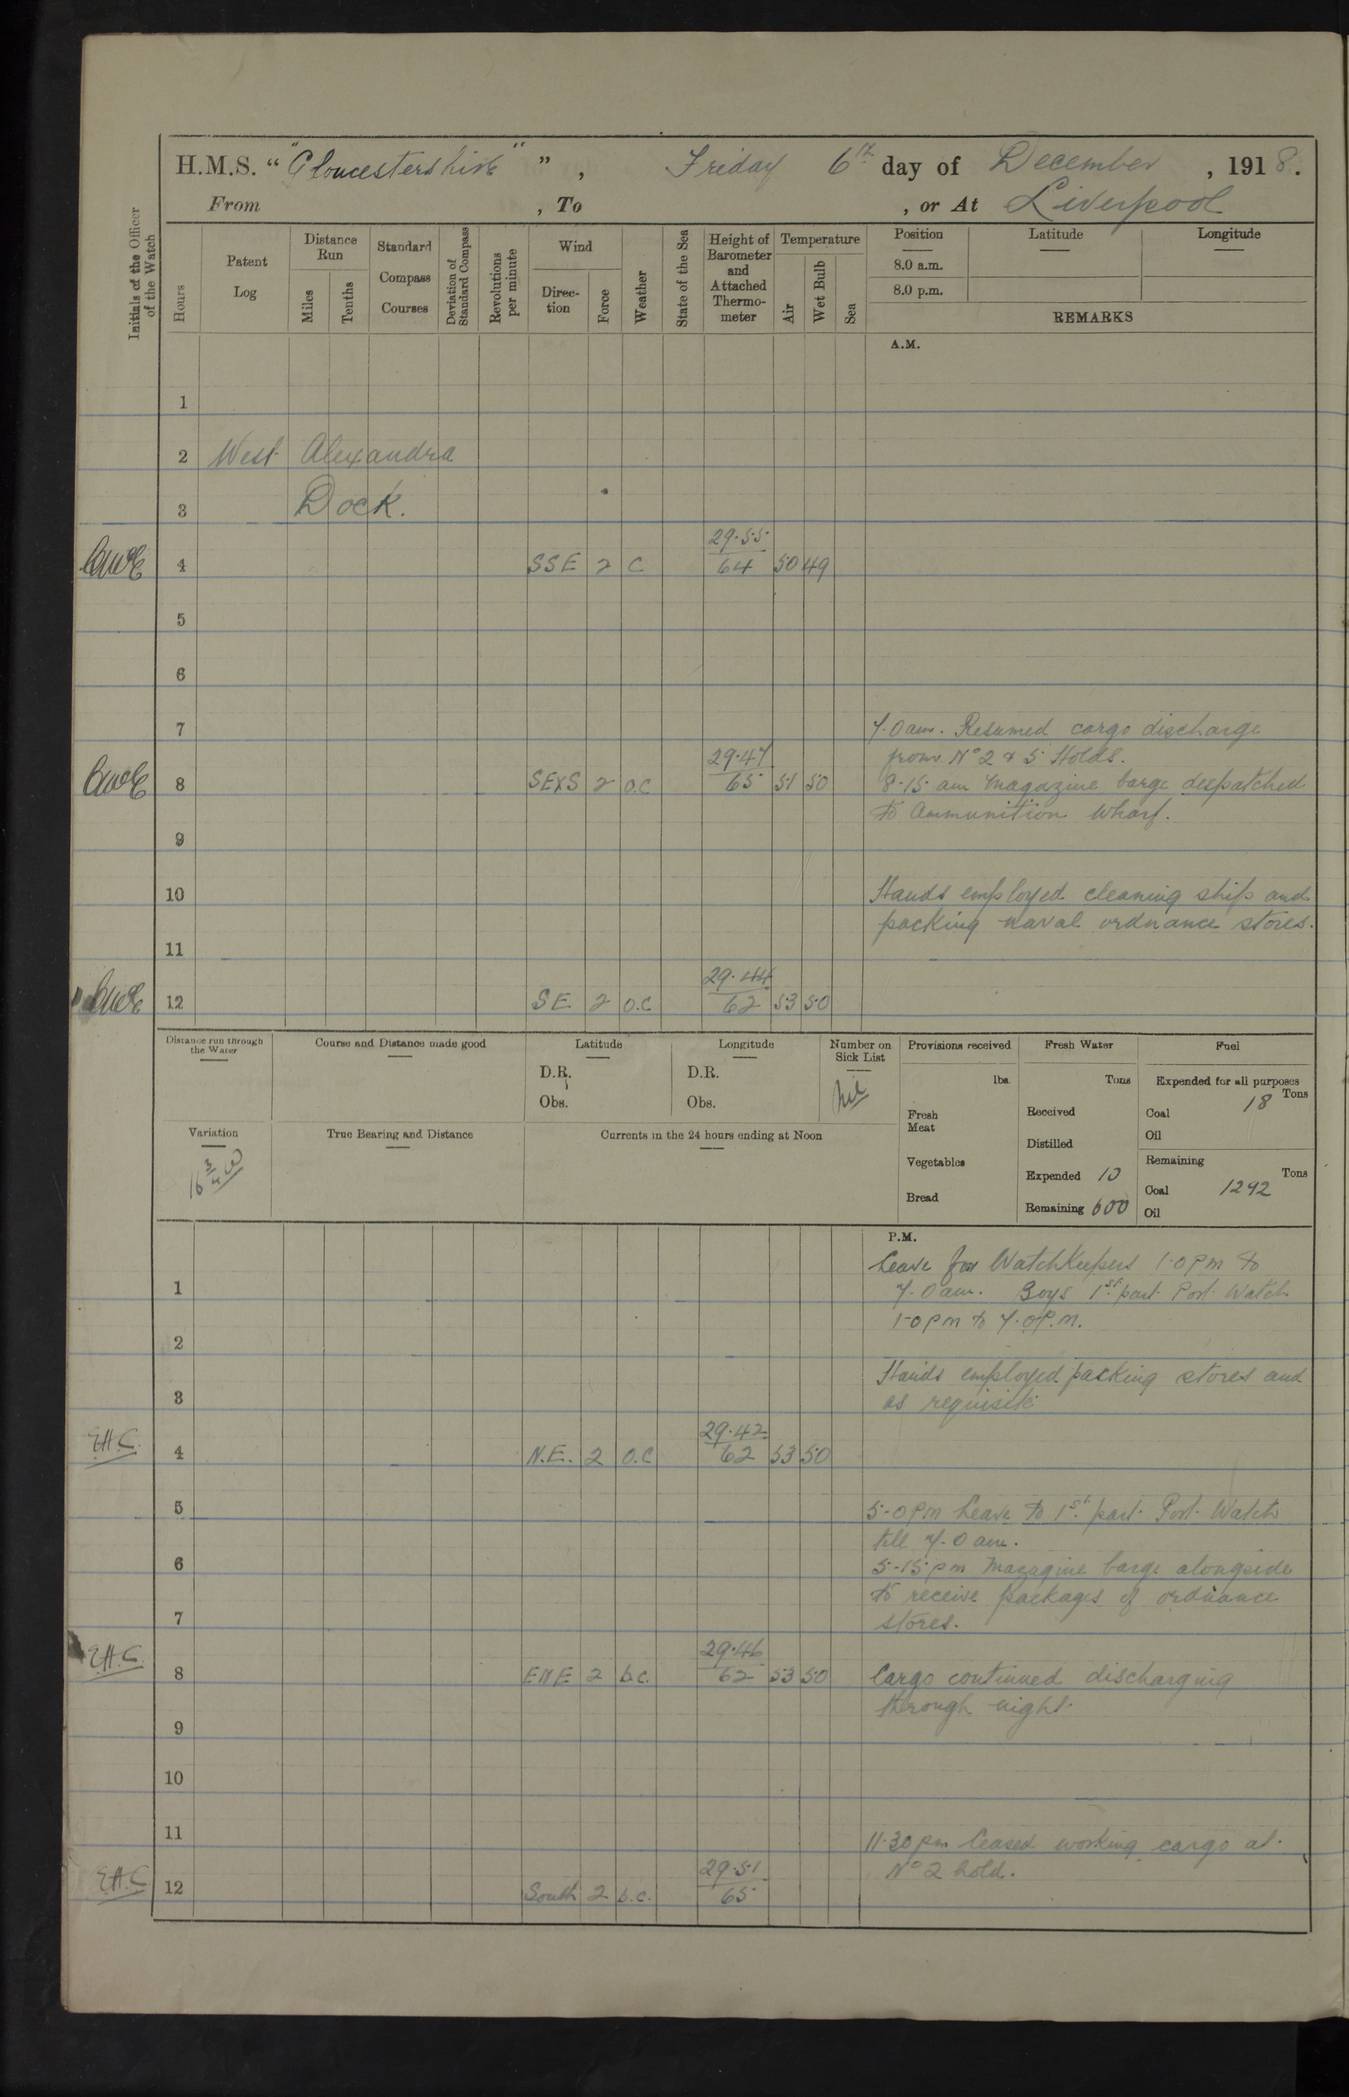 H.M.S. “ "Gloucestershire" ” , Friday 6th day of December , 1918.
From , To , or At Liverpool
Initials of the Officer of the Watch
Hours
Patent Log
Distance Run
Miles
Tenths
Standard Compass Courses
Deviation of Standard Compass
Revolutions per minute
Wind
Direc-tion
Force
Weather
State of the Sea
Height of Barometer and Attached Thermo-meter
Temperature
Air
Wet Bulb
Sea
Position Latitude Longitude
8.0 a.m.
8.0 p.m.
REMARKS
A.M.
1
2 West Alexandra
3 Dock.
29.55
4 SSE 2 C 64 50 49
5
6
7 7.0am. Resumed cargo discharge
29.47 from No 2 & 5 Holds.
8 SExS 2 O.C 65 51 50 8.15 am Magazine barge despatched
to Ammunition Wharf.
9
10 Hands employed cleaning ship and
packing naval ordnance stores.
11
29.44
12 SE 2 O.C 62 53 50
Distance run through the Water
Course and Distance made good
Latitude
D.R.
Obs.
Longitude
D.R.
Obs.
Number on Sick List
Nil
Provisions received
lbs.
Fresh Meat
Vegetables
Bread
Fresh Water
Tons
Received
Distilled
Expended 10
Remaining 600
Fuel
Expended for all purposes
Tons
Coal 18
Oil
Remaining
Tons
Coal 1292
Oil
Variation
16 3/4 W
True Bearing and Distance
Currents in the 24 hours ending at Noon
P.M.
Leave for WatchKeepers 1.0 pm to
1 7.0am. Boys 1st part Port Watch
1.0 pm to 7.0 P.M.
2
Hands employed packing stores and
3 as requisite
E.H.C. 29.42
4 N.E. 2 O.C 62 53 50
5 5.0 pm Leave to 1st part Port Watch
till 7.0 am.
6 5.15 pm Magazine barge alongside
to receive packages of ordnance
7 stores.
E.H.C. 29.46
8 ENE 2 b.c. 62 53 50 Cargo continued discharging
through night.
9
10
11 11.30 pm Ceased working cargo at
E.H.C. 29.51 No 2 hold.
12 South 2 b.c. 65